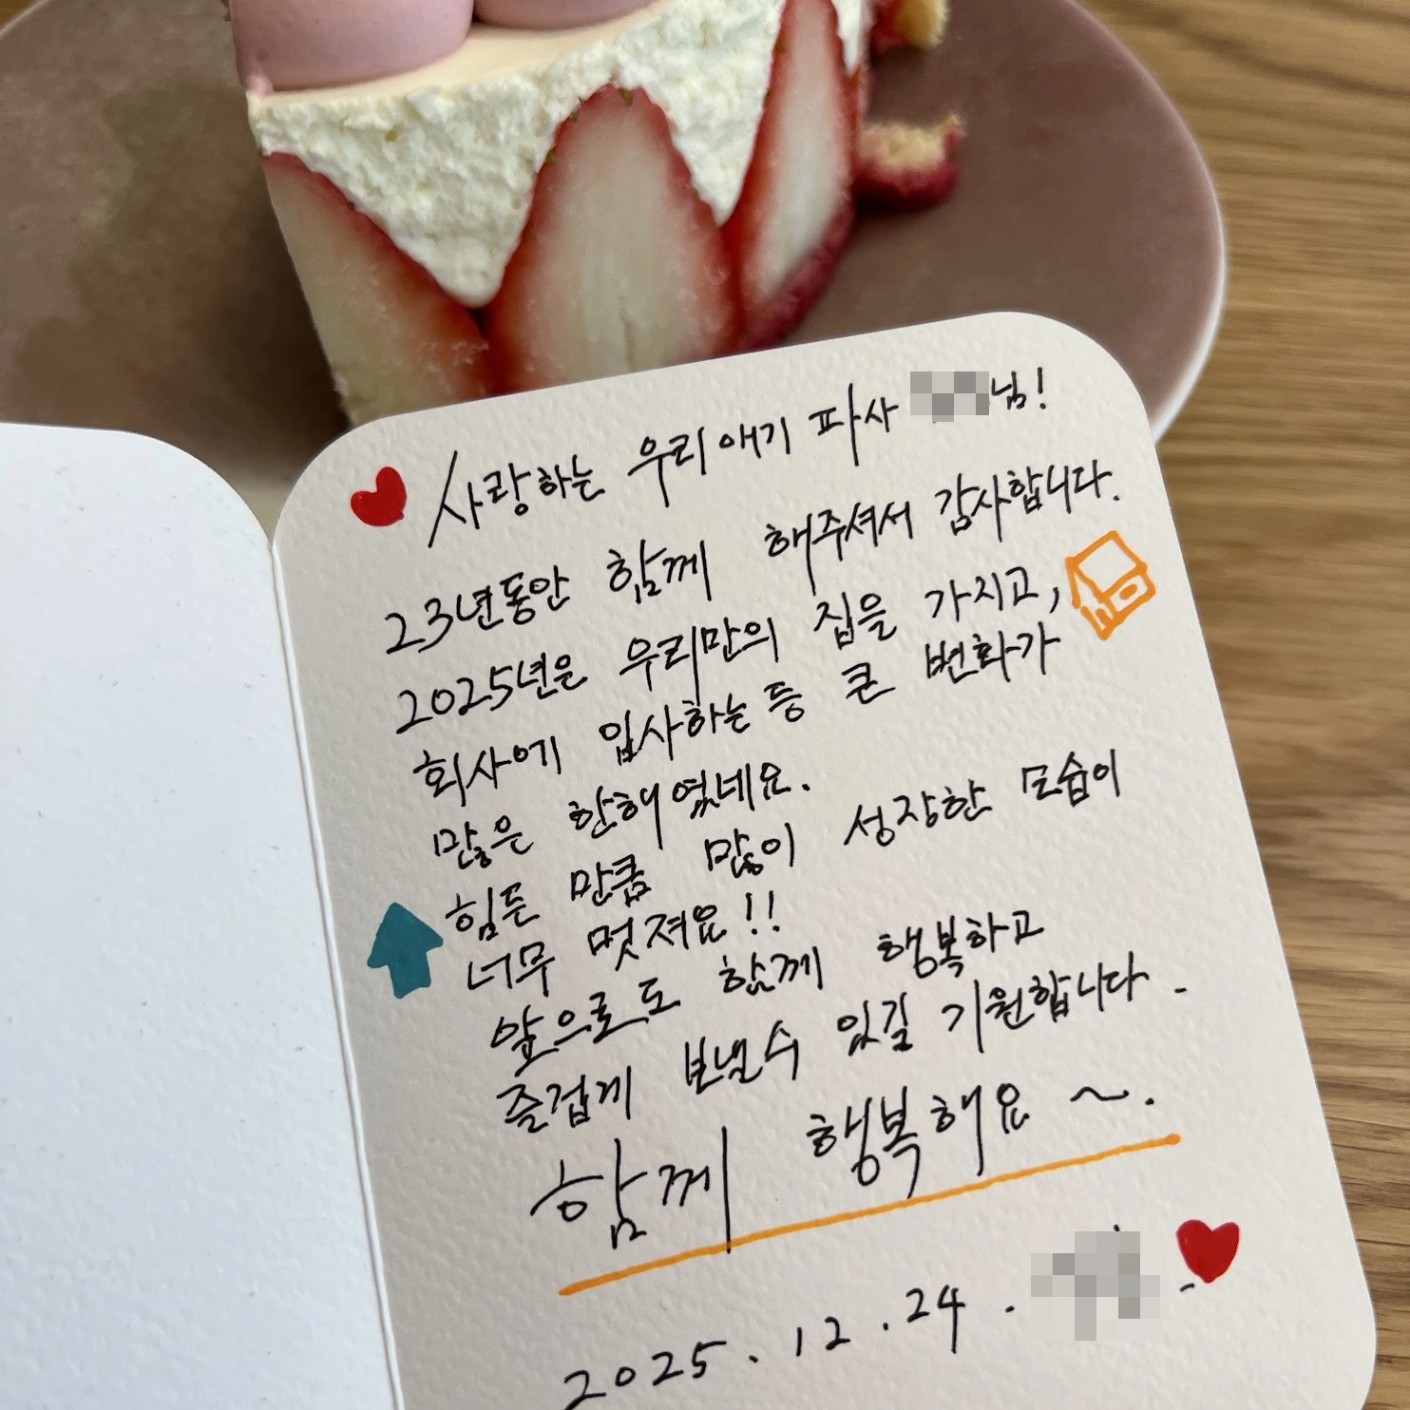 사랑하는 우리 애기 파사 님!
23년동안 함께 해주셔서 감사합니다.
2025년은 우리만의 집을 가지고,
회사에 입사하는 등 큰 변화가
많은 한해였네요.
힘든 만큼 많이 성장한 모습이
너무 멋져요!!
앞으로도 함께 행복하고
즐겁게 보낼수 있길 기원합니다.
함께 행복해요~.
2025.12.24.